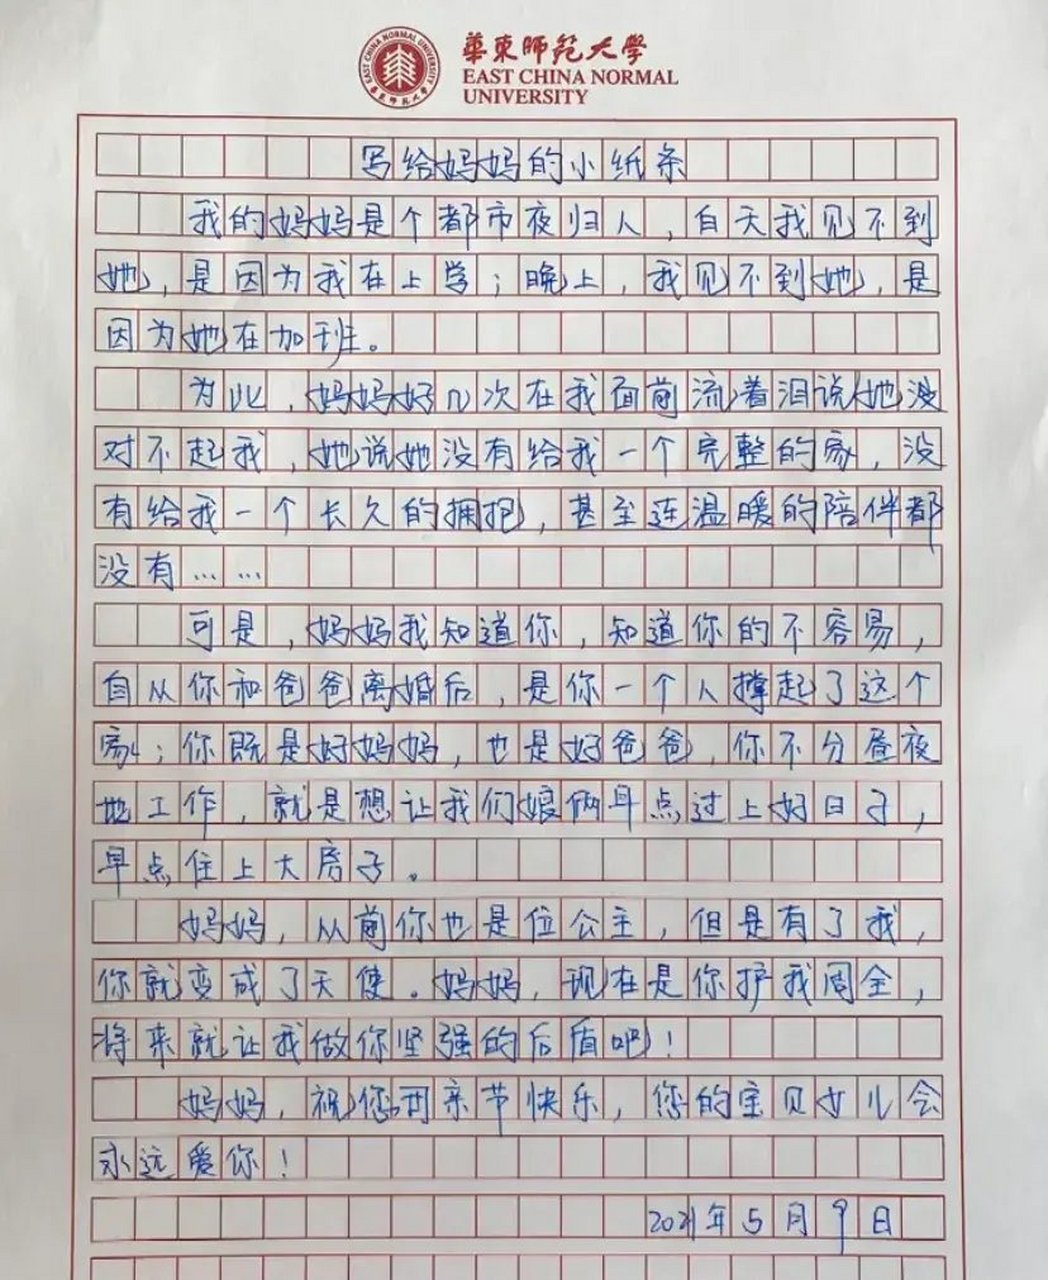 華東師範大學
EAST CHINA NORMAL
UNIVERSITY
EAST CHINA NORMAL UNIVERSITY
華東师范大学
写给妈妈的小纸条
我的妈妈是个都市夜归人,白天我见不到
她,是因为我在上学;晚上,我见不到她,是
因为她在加班。
为此,妈妈好几次在我面前流着泪说她
对不起我,她说她没有给我一个完整的家,没
有给我一个长久的拥抱,甚至连温暖的陪伴都
没有……
可是,妈妈我知道你,知道你的不容易,
自从你和爸爸离婚后,是你一个人撑起了这个
家;你既是好妈妈,也是好爸爸,你不分昼夜
地工作,就是想让我们娘俩早点过上好日子,
早点住上大房子。
妈妈,从前你也是位公主,但是有了我,
你就变成了天使。妈妈,现在是你护我周全,
将来就让我做你坚强的后盾吧!
妈妈,祝您母亲节快乐,您的宝贝女儿会
永远爱你!
2021年5月9日